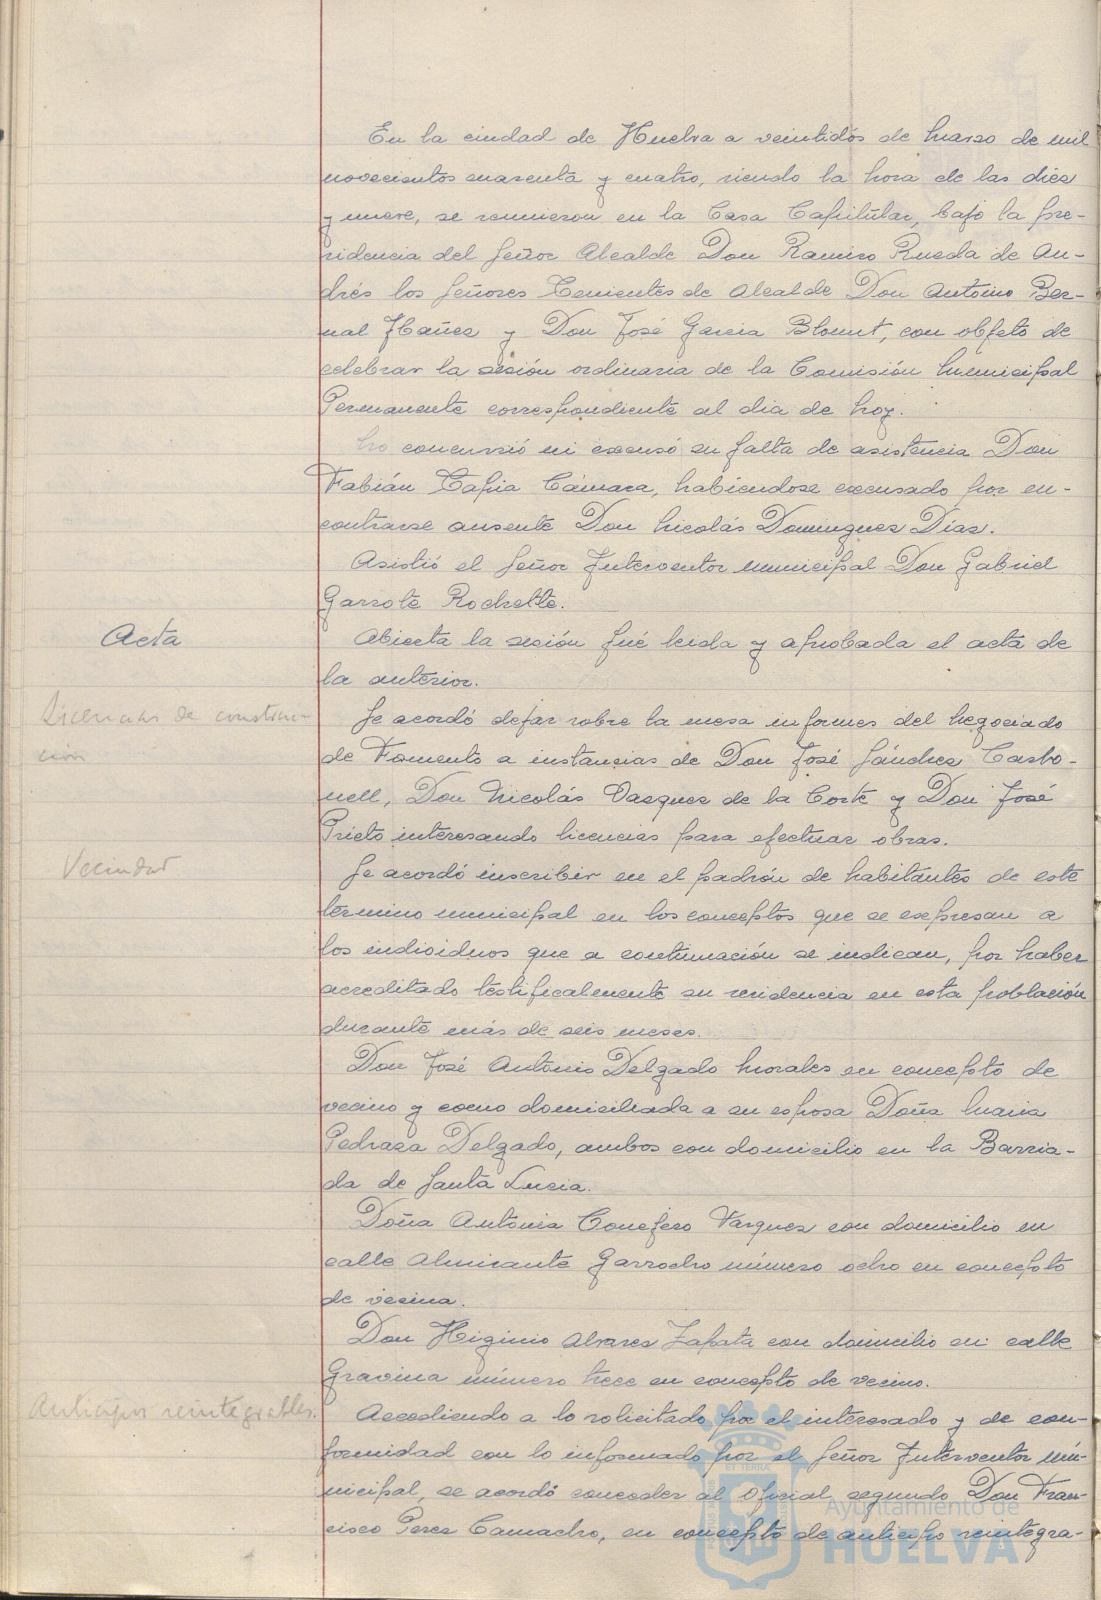 En la ciudad de Huelva a veintidós de Marzo de mil
novecientos cuarenta y cuatro, siendo la hora de las diez
y nueve, se reunieron en la Casa Capitular, bajo la pre-
sidencia del Señor Alcalde Don Ramiro Rueda de An-
drés los Señores Tenientes de Alcalde Don Antonio Ber-
nal Ibañez y Don José Garcia Blount, con objeto de
celebrar la sesión ordinaria de la Comisión Municipal
Permanente correspondiente al dia de hoy.
No concurrió ni excusó su falta de asistencia Don
Fabián Tapia Cámara, habiendose excusado por en-
contrarse ausente Don Nicolás Dominguez Díaz.
Asistió el Señor Interventor municipal Don Gabriel
Garrote Rochette.
Acta
Abierta la sesión fué leida y aprobada el acta de
la anterior.
Licencias de construc-
ción
Se acordó dejar sobre la mesa informes del Negociado
de Fomento a instancias de Don José Sánchez Carbo-
nell, Don Nicolás Vazquez de la Corte y Don José
Prieto interesando licencias para efectuar obras.
Vecindad
Se acordó inscribir en el padrón de habitantes de este
término municipal en los conceptos que se expresan a
los individuos que a continuación se indican, por haber
acreditado testificalmente su residencia en esta población
durante más de seis meses.
Don José Antonio Delgado Morales en concepto de
vecino y como domiciliada a su esposa Doña Maria
Pedraza Delgado, ambos con domicilio en la Barria-
da de Santa Lucia.
Doña Antonia Conejero Vazquez con domicilio en
calle Almirante Garrocho número ocho en concepto
de vecina.
Don Higinio Alvarez Zapata con domicilio en calle
Gravina número trece en concepto de vecino.
Anticipos reintegrables.
Accediendo a lo solicitado por el interesado y de con-
formidad con lo informado por el Señor Interventor mu-
nicipal, se acordó conceder al Oficial segundo Don Fran-
cisco Perez Camacho, en concepto de anticipo reintegra-
Ayuntamiento de
HUELVA